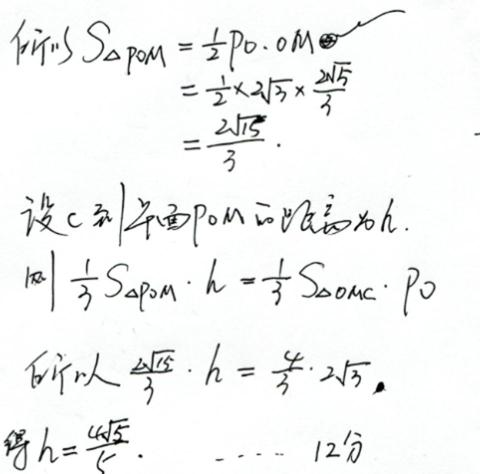 所以 S△POM = 1/2 PO · OM
= 1/2 × 2√3 × 2√5/3
= 2√15/3 .
设 C 到平面POM的距离为h.
则 1/3 S△POM · h = 1/3 S△OMC · PO
所以 2√15/3 · h = 4/3 · 2√3 .
得 h = 4√5/5 . ..... 12分